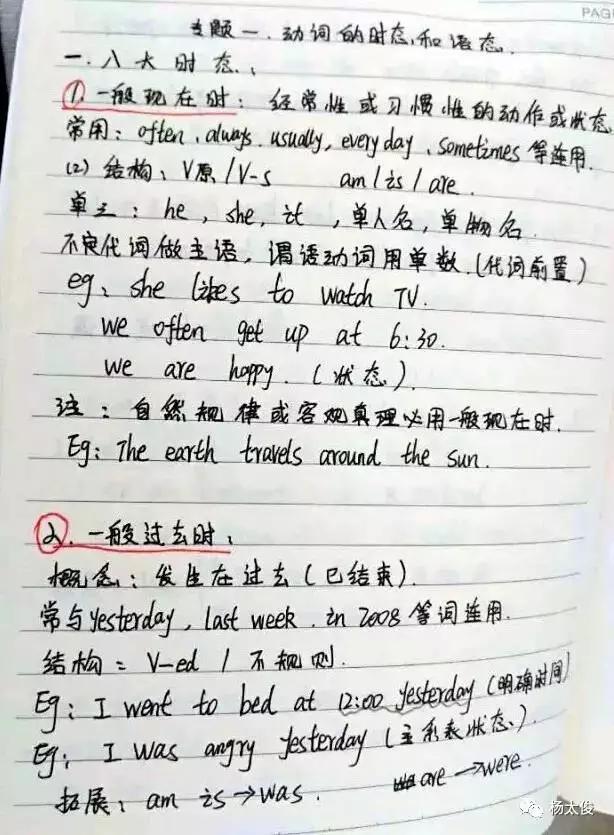 PAGE
专题一.动词的时态和语态.
一.八大时态:
①.一般现在时:经常性或习惯性的动作或状态
常用:often、always、usually,every day、sometimes等连用.
(2)结构:V原/V-s am/is/are.
单三:he,she,it,单人名,单物名.
不定代词做主语,谓语动词用单数.(代词前置)
eg:she likes to watch TV.
we often get up at 6:30.
we are happy.(状态).
注:自然规律或客观真理必用一般现在时.
Eg:The earth travels around the sun.
②.一般过去时:
概念:发生在过去(已结束).
常与yesterday,last week.in 2008等词连用.
结构=V-ed/不规则.
Eg:I went to bed at 12:00 yesterday(明确时间)
Eg:I was angry yesterday(主系表状态).
拓展:am is→was. are→were.
杨太俊